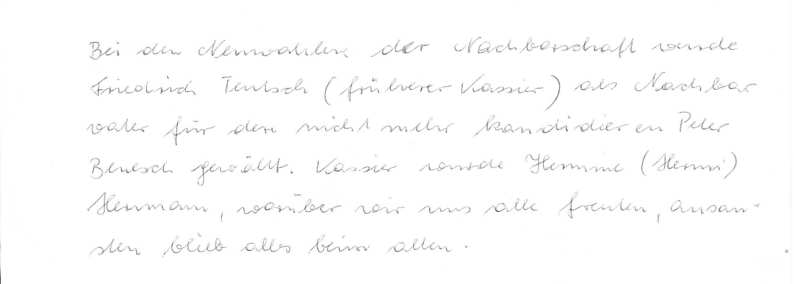 Bei den Neuwahlen der Nachbarschaft wurde
Friedrich Teutsch (früherer Kassier) als Nachbar
vater für den nicht mehr kandidieren Peter
Benesch gewählt. Kassier wurde Hermine (Hermi)
Hermann, worüber wir uns alle freuten, ansan-
sten blieb alles beim alten.